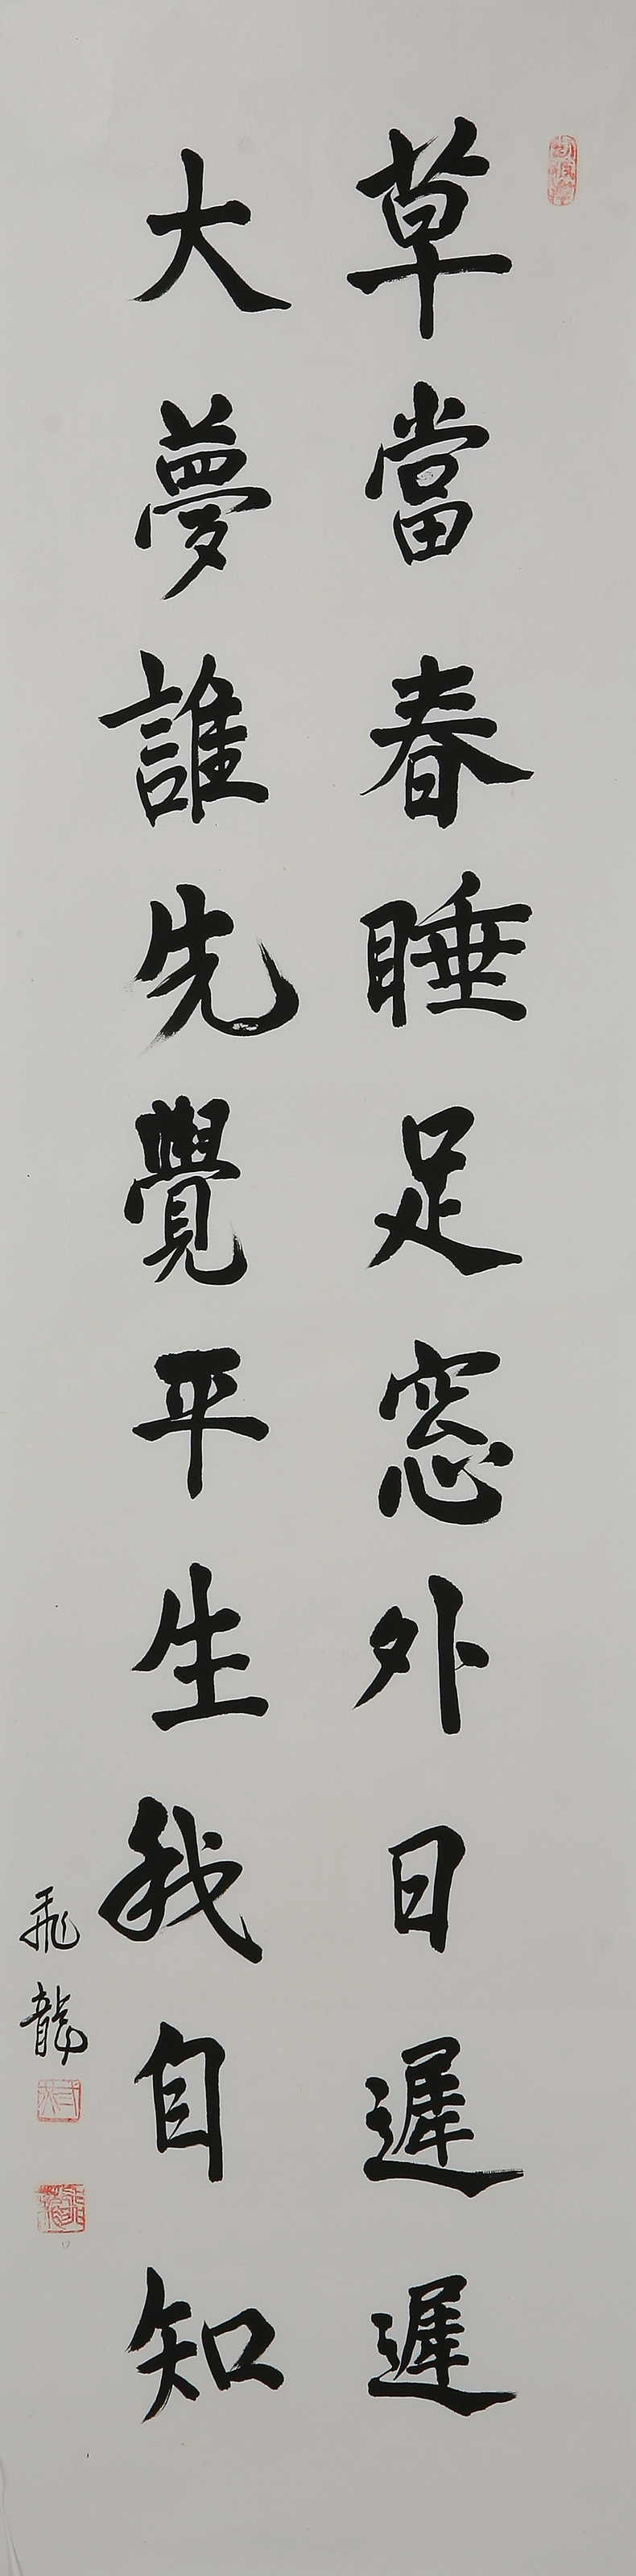 草當春睡足窓外日遲遲
大夢誰先覺平生我自知
飛龍